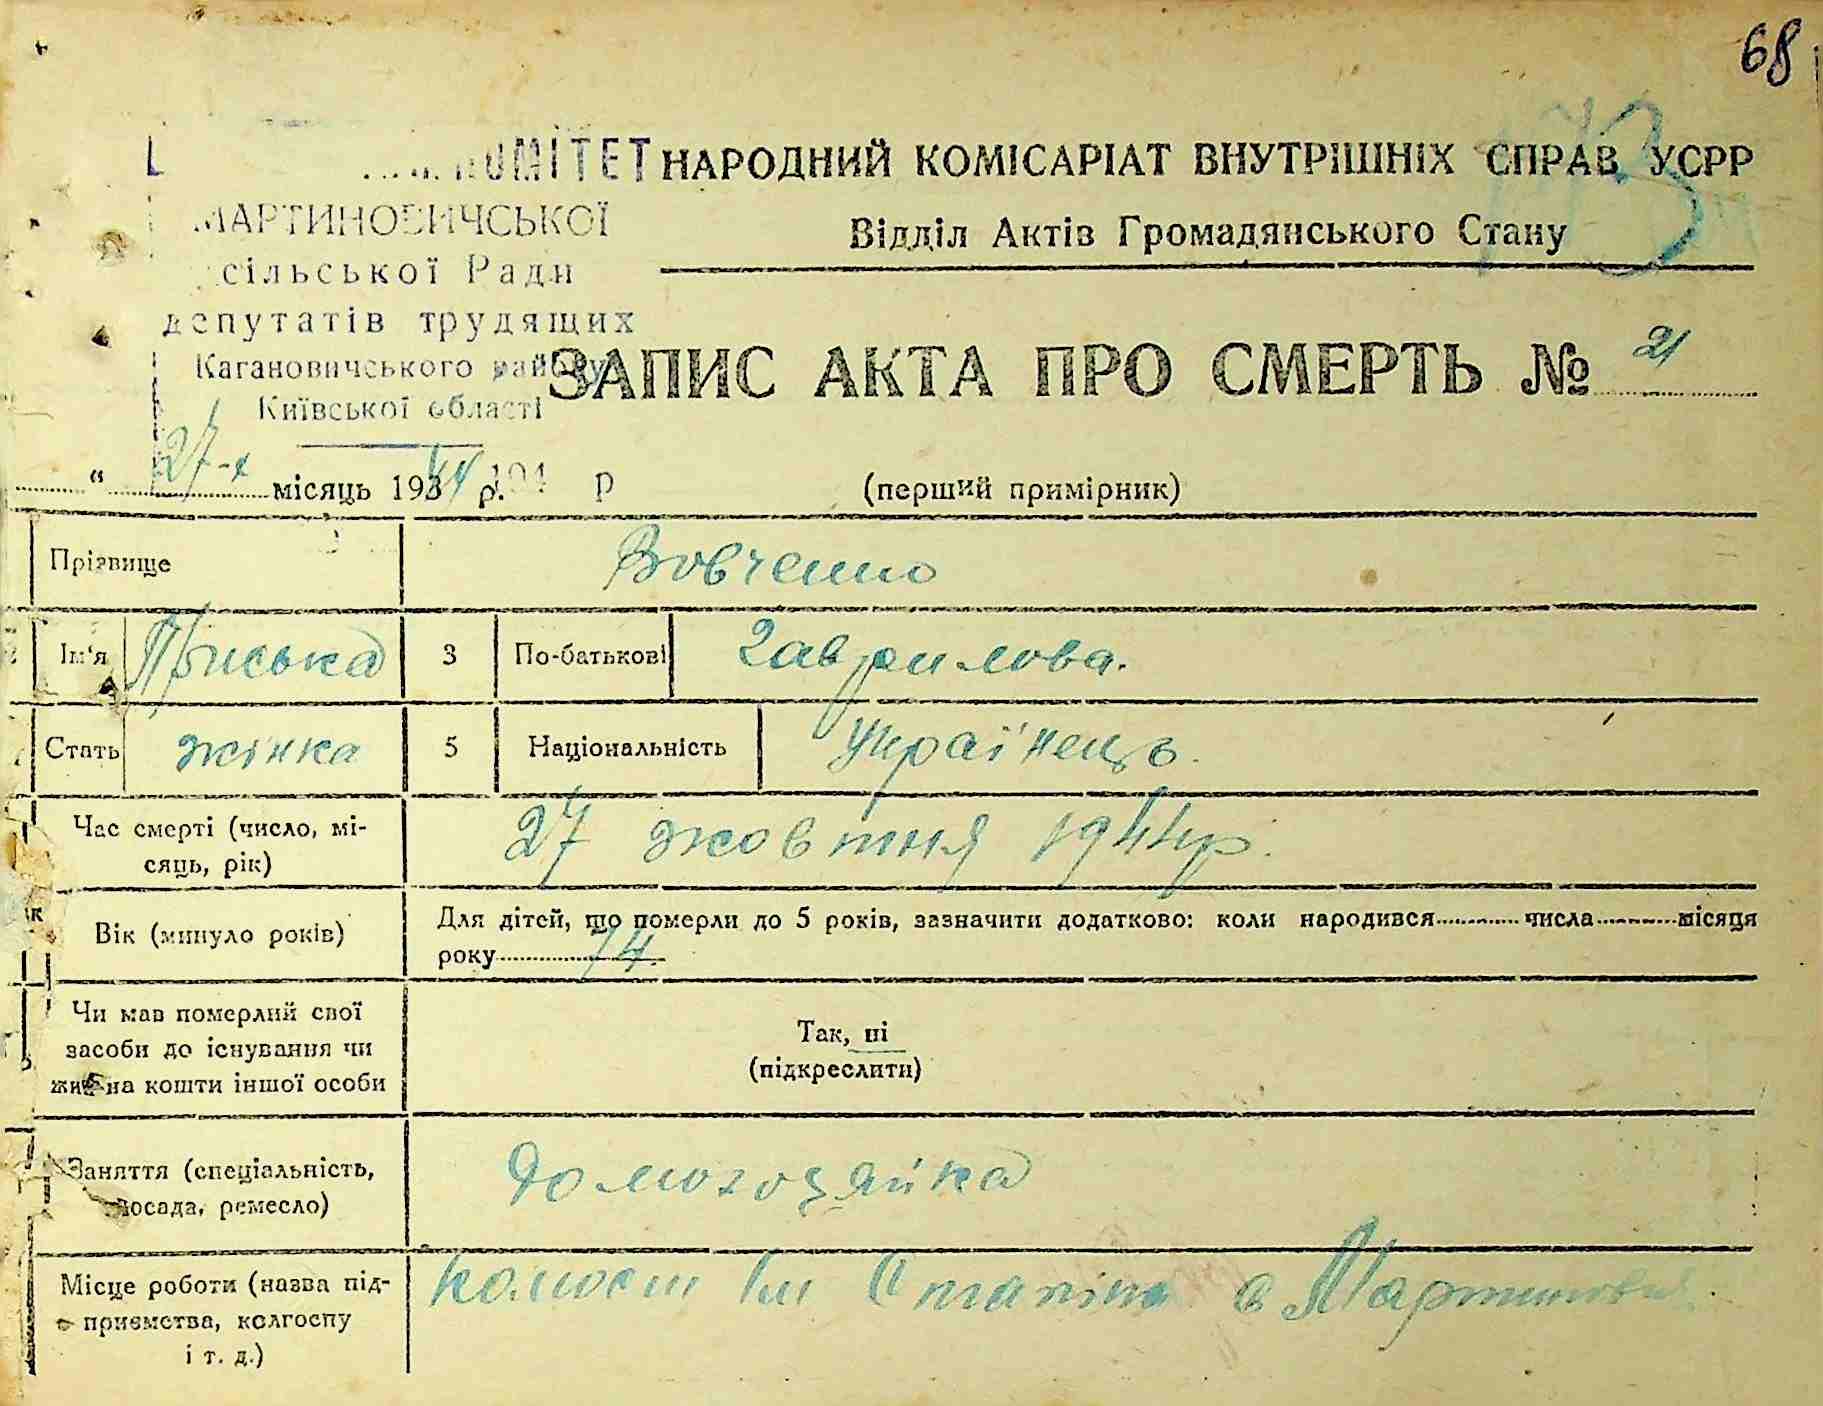 68
173
КОМІТЕТ
МАРТИНОВИЧСЬКОЇ
сільської Ради
депутатів трудящих
Кагановичського району
Київської області
194 р
НАРОДНИЙ КОМІСАРІАТ ВНУТРІШНІХ СПРАВ УСРР
Відділ Актів Громадянського Стану
ЗАПИС АКТА ПРО СМЕРТЬ № 21
" 27-х місяць 1944 р.
(перший примірник)
Прізвище Вовченко
Ім'я Приська 3 По-батькові Гаврилова.
Стать жінка 5 Національність Українець.
Час смерті (число, мі-
сяць, рік) 27 жовтня 1944р.
Вік (минуло років) Для дітей, що померли до 5 років, зазначити додатково: коли народився числа місяця
року 74.
Чи мав померлий свої
засоби до існування чи
жив на кошти іншої особи
Так, ні
(підкреслити)
Заняття (спеціальність,
посада, ремесло) Домогозяйка
Місце роботи (назва під-
приємства, колгоспу
і т. д.)
колгосп Ім Сталіна с Мартинович